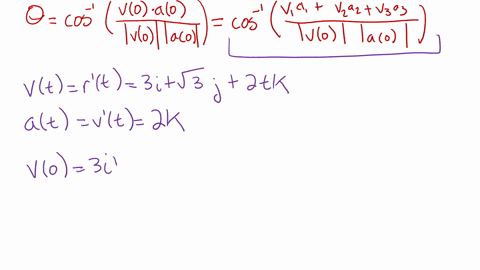 θ = cos⁻¹(v(0)·a(0) / |v(0)||a(0)|) = cos⁻¹(v₁a₁ + v₂a₂ + v₃a₃ / |v(0)| |a(0)|)
v(t) = r'(t) = 3i + √3 j + 2tk
a(t) = v'(t) = 2k
v(0) = 3i